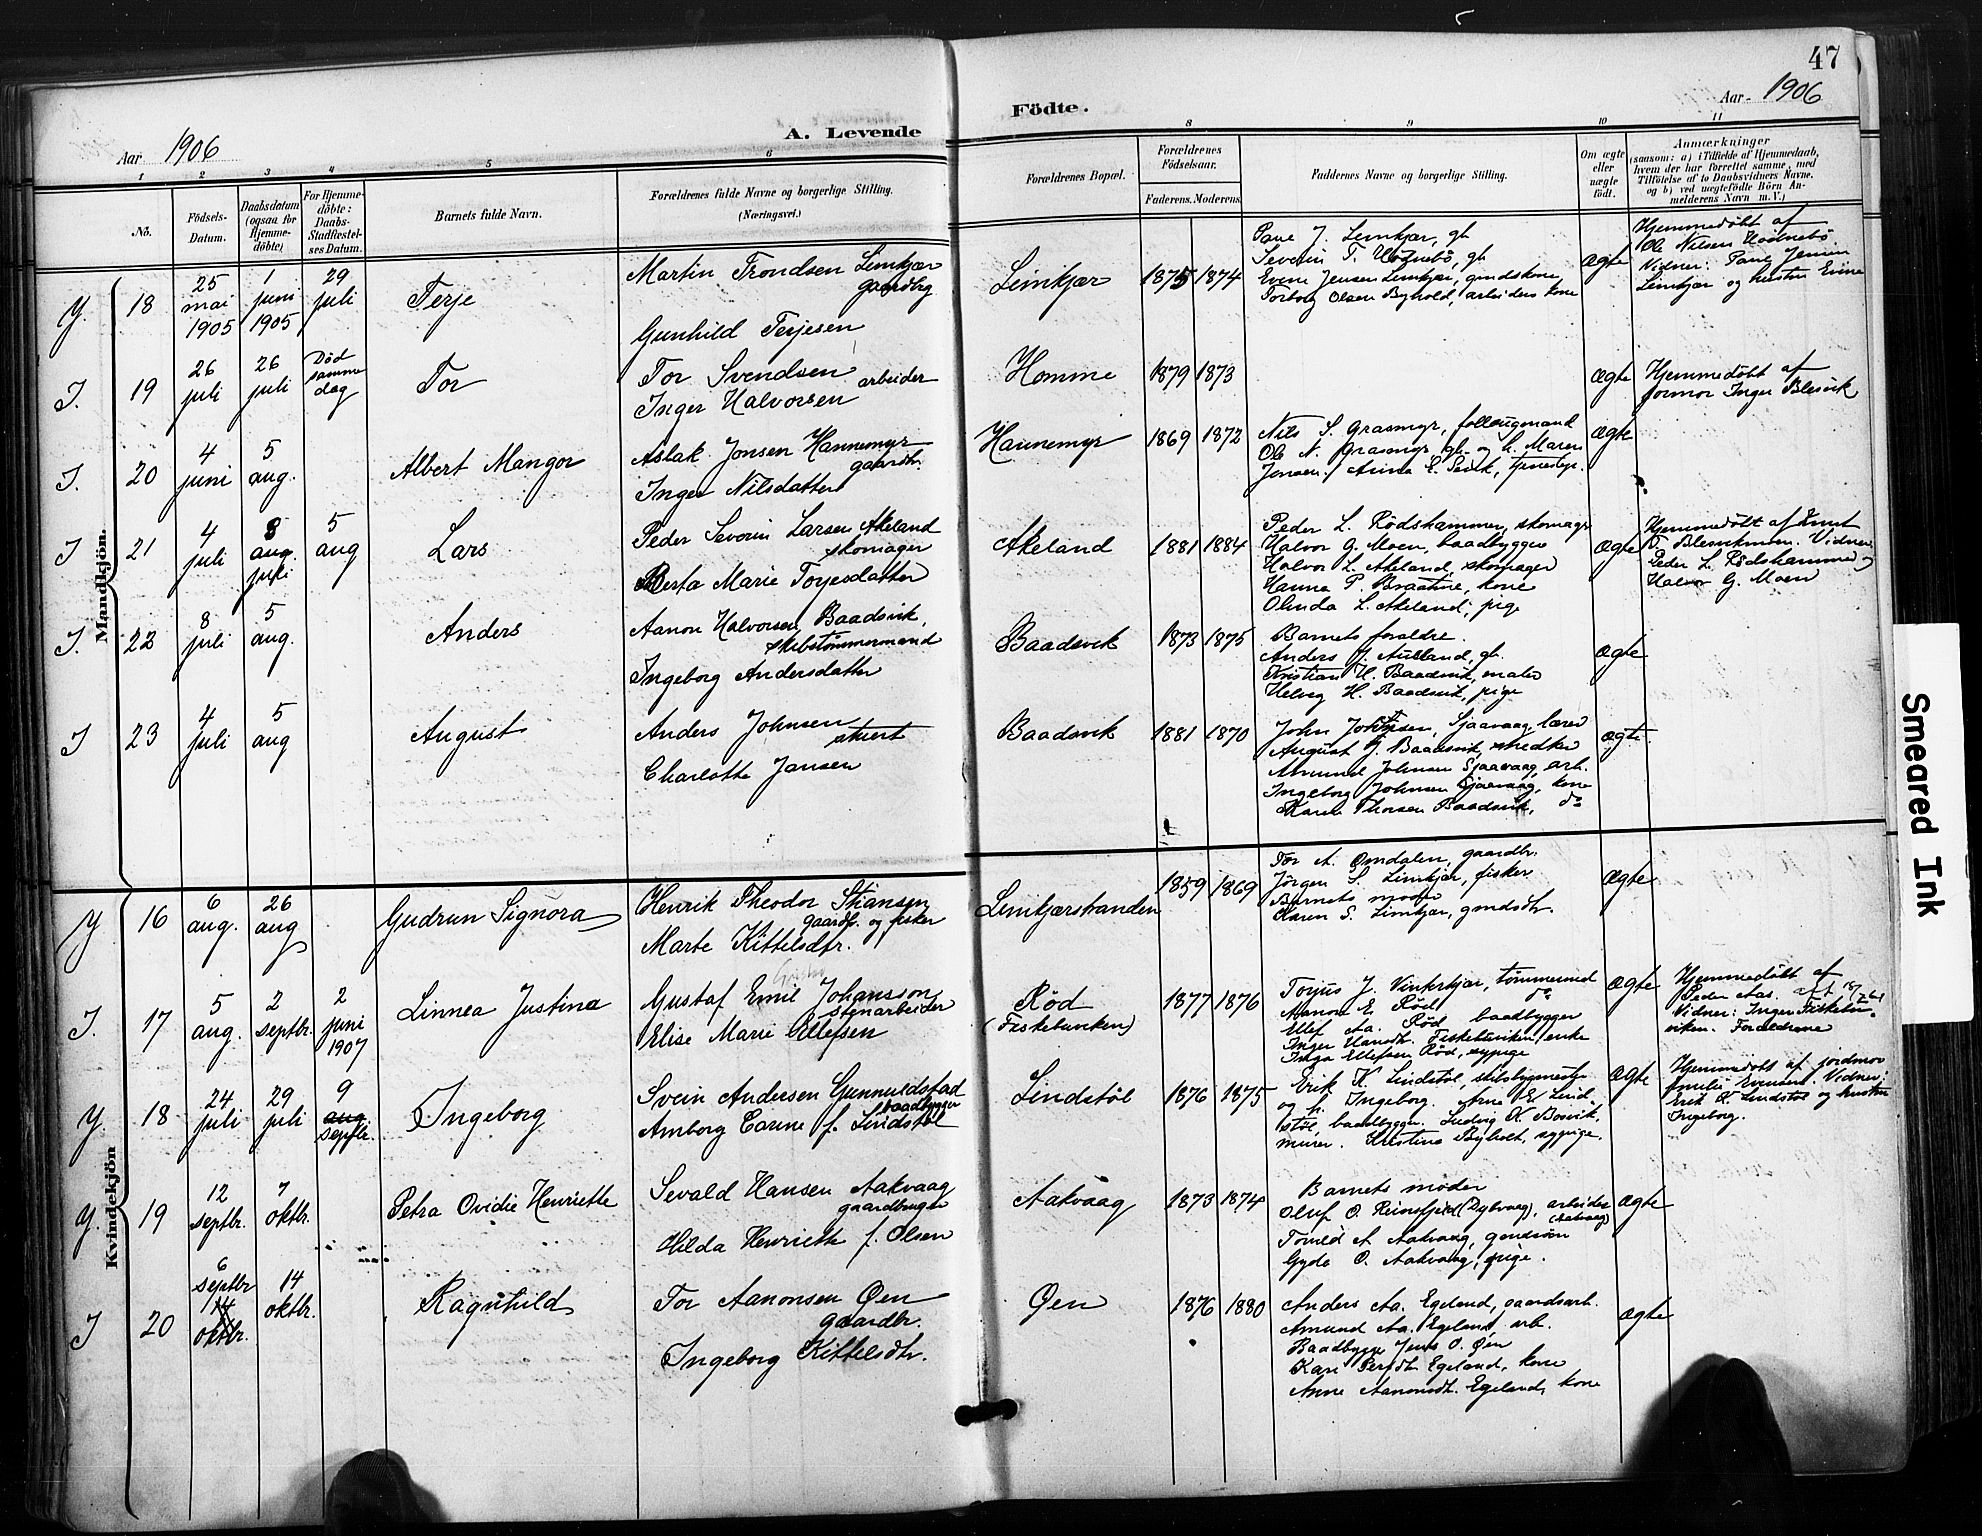 47
Aar 1906
A. Levende
Födte.
Aar 1906
1 2 3 4 5 6
8 9 10 11
No.
Födsels-
Datum.
Daabsdatum
(ogsaa for
Hjemme-
döbte)
For Hjemme-
döbte:
Daabs-
Stadfæstel-
ses Datum.
Barnets fulde Navn.
Forældrenes fulde Navne og borgerlige Stilling.
(Næringsvei.)
Forældrenes Bopæl.
Forældrenes
Födselsaar.
Faderens. Moderens.
Faddernes Navne og borgerlige Stilling.
Om ægte
eller
uægte
født.
Anmærkninger
(saasom: a) i Tilfælde af Hjemmedaab,
hvem der har forrettet samme, med
Tilföielse af to Daabsvidners Navne.
og b) ved uægtefödte Börn An-
melderens Navn m. V.)
Mandkjön.
Y. 18
25
mai
1905
1
juni
1905
29
juli
Terje
Martin Trondsen Limkjær
gaardbg
Gunhild Terjesen
Limkjær
1875 1874
J. Limkjær, gb.
Severin T. Hödnebö, gb
Evine Jensen Limkjær, gmdskone
Torborg Olsen Byhold, arbeiders kone
ægte
Hjemmedøbt af
Ole Nilsen Hödnebö
Vidner: Jensen
Limkjær og hustru Evine
J. 19
26
juli
26
juli
Død
samme
dag
Tor
Tor Svendsen
arbeider
Inger Halvorsen
Homme
1879 1873
ægte
Hjemmedøbt af
formor Inger Blesvik
J. 20
4
juni
5
aug.
Albert Mangor
Aslak Jonsen Hannemyr
gaardbr.
Inger Nilsdatter
Hannemyr
1869 1872
Nils S. Grasmyr,
Ole N. Grasmyr, gb. og h. Maren
Jensen. / Anna E. tjenestepr.
ægte
J 21
4
juli
5
aug.
juli
5
aug
Lars
Peder Severin Larsen Akeland
skomager
Berta Marie Torjesdatter
Akeland
1881 1884
Peder L. Rödshammer, skomager
Halvor G. Moen, baadbygger
Halvor L. Akeland, skomager
Hanna P. Braatne, kone
Olinda L. Akeland, pige
ægte
Hjemmedøbt af Knut
T. Vidner
Peder L. Rödshammer og
Halvor G. Moen
J. 22
8
juli
5
aug.
Anders
Aanon Halvorsen Baadsvik,
skibstømmermand
Ingeborg Andersdatter
Baadsvik
1873 1875
Barnets forældre.
Anders J. gb.
Kristian H. Baadsvik, maler
Helvig H. Baadsvik, pige
ægte
J 23
4
juli
5
aug
August
Anders Johnsen
stuert
Charlotte Jansen
Baadsvik
1881 1870
John Johnsen, Sjaavaag, lærer
August J. Baadsvik, snedker
Amund Johnsen Sjaavaag, arb.
Ingeborg Johnsen Sjaavaag, kone
Karen Thorsen Baadsvik, do
ægte
Kvindekjön
Y 16
6
aug.
26
aug
Gudrun Signora
Henrik Theodor Stiansen
gaardb. og fisker
Marte Kittelsdtr.
Limkjærstranden
1859 1869
Tor A. Omdalen, gaardbr.
Jörgen S. Limkjær, fisker
Barnets moder
Karen S. Limkjær, gmdsdtr.
ægte
J. 17
5
aug.
2
septbr.
2
juni
1907
Linnea Justina
Gustaf Emil Johansson
stenarbeider
Elise Marie Ellefsen
Rød
(Fiskebunken)
1877 1876
Torjus J. Vinterkjær, tömmermd
Aanon E. Röd do
Ellef Aa. Röd baadbygger
Inger Hansdtr. Fiskebunken, enke
Inga Ellefsen Röd, sypige
ægte
Hjemmedøbt af
Peder Aas.
Vidner: Inger
Forældrene
Y 18
24
juli
29
juli
9
aug
septbr.
Ingeborg
Svein Andersen Gunnuldstad
baadbygger
Amborg Carine f. Lindstöl
Lindstöl
1876 1875
Erik K. Lindstöl, skibsbygmester
og h. Ingeborg. Arne E. Lind-
støl, baadbygger. Ludvig K. Bosvik,
murer. Kristine Byholt, sypige.
ægte
Hjemmedøbt af jordmor
Emilie Evensen. Vidner:
Erik K. Lindstöl og hustru
Ingeborg.
Y. 19
12
septbr.
7
oktbr.
Petra Ovidie Henriette
Sevald Hansen Aakvaag
gaardbruger
Hilda Henriette f. Olsen
Aakvaag
1873 1874
Barnets moder
Oluf O. Reinsfjeld (Dybvaag), arbeider
(Aakvaag)
A. Aakvaag, gmdssön
Gyda O. Aakvaag, pige.
ægte
J 20
6
septbr
14
oktbr.
14
oktbr.
Ragnhild
Tor Aanonsen Øen
gaardbr.
Ingeborg Kittelsdtr.
Øen
1876 1880
Anders Aa. Egeland, gaardsarb.
Amund Aa. Egeland arb.
Baadbygger Jens O. Øen
Kari Persdtr Egeland, kone
Anne Aanonsdtr. Egeland, kone
ægte
Smeared Ink